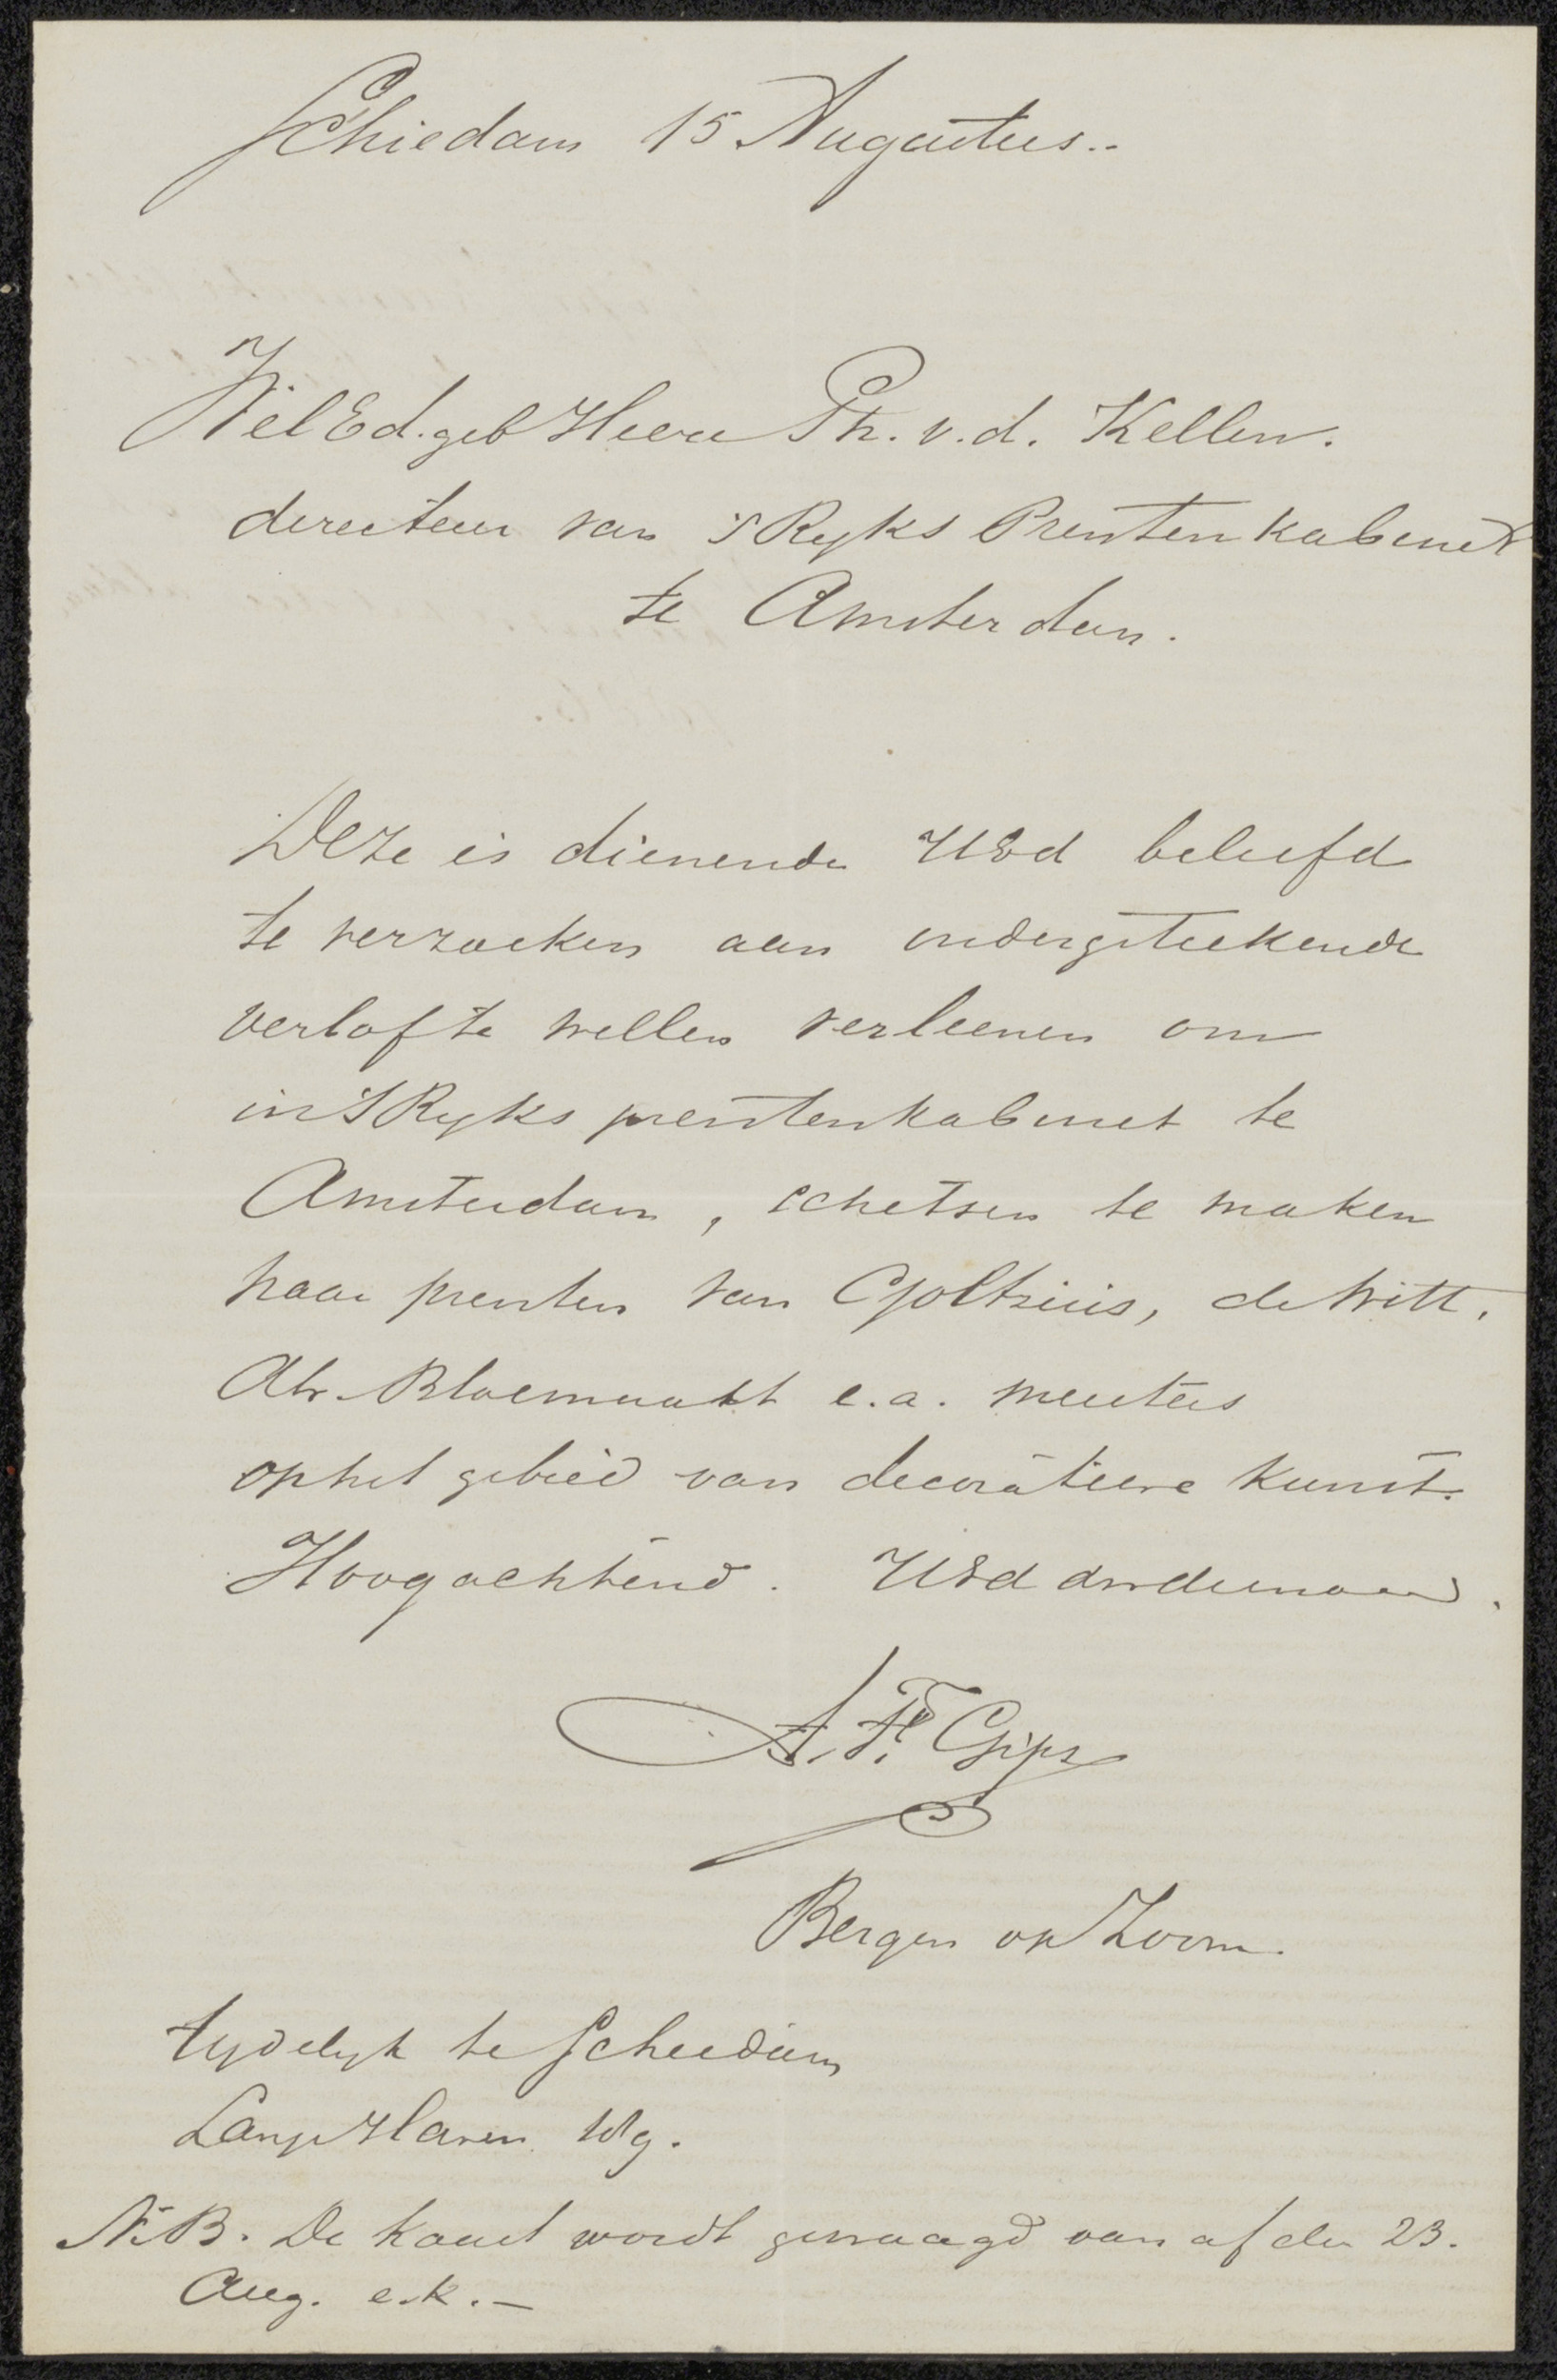 Schiedam 15 Augustus..
WelEd.geb Heere Ph. v.d. Kellen.
directeur van 's Ryks Prentenkabinet
te Amsterdam.
Deze is dienende UEd beleefd
te verzoeken aan ondergeteekende
verlof te willen verleenen om
in 's Ryks prentenkabinet te
Amsterdam, schetsen te maken
naar prenten van Goltzius, de Witt.
Abr. Bloemaert e.a. meesters
op het gebied van decoratieve kunst.
Hoogachtend. UEd dwdienaar.
A. F. Gips
Bergen op Zoom.
tydelyk te Schiedam
Lange Haven Wg.
N.B. De kaart wordt gevraagd van af den 23.
Aug. e.k. —